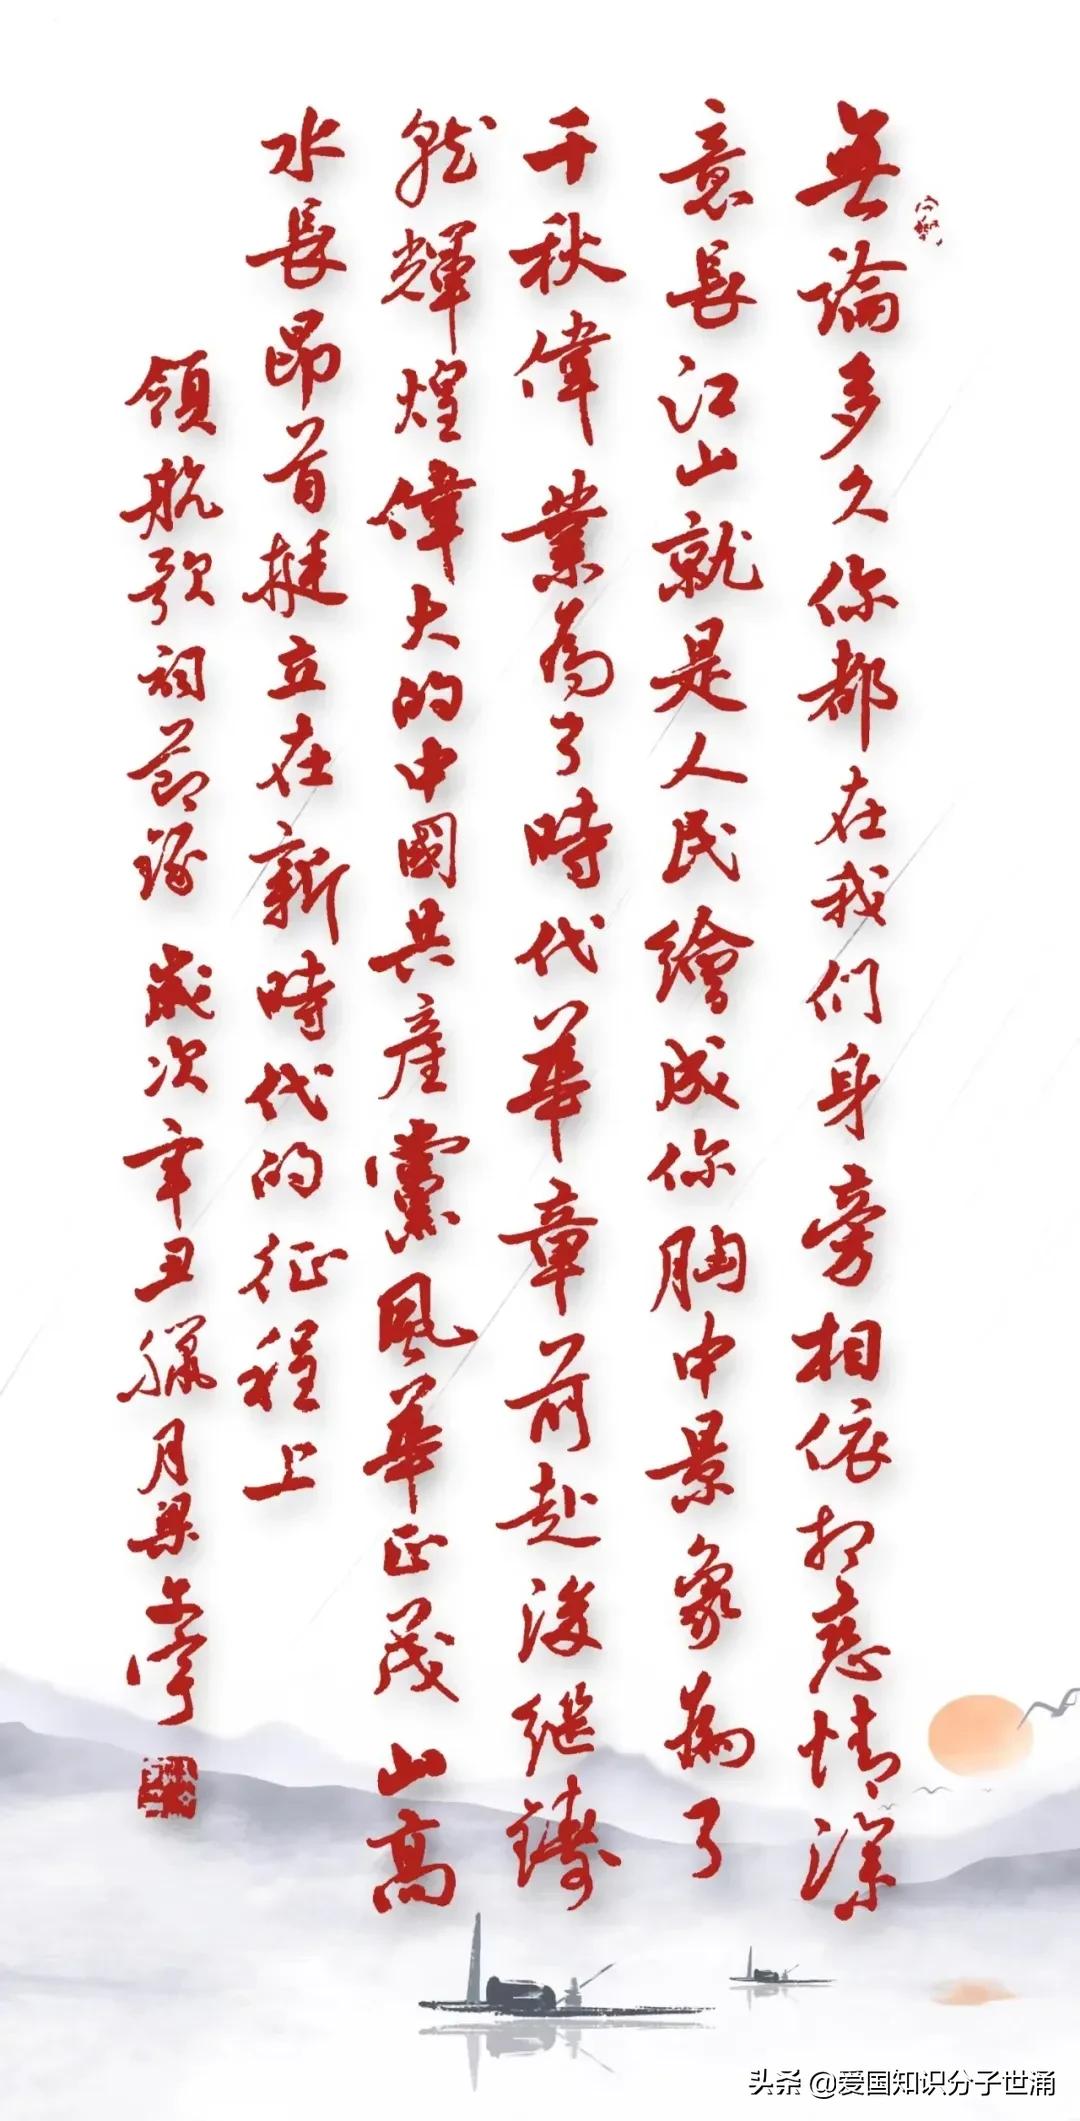 無論多久你都在我们身旁相依相恋情深
意長江山就是人民繪成你胸中景象為了
千秋偉業為了時代華章前赴後继鑄
就輝煌偉大的中國共產黨風華正茂山高
水長昂首挺立在新時代的征程上
領航歌詞節録 歲次辛丑臘月梁
头条 @爱国知识分子世涌